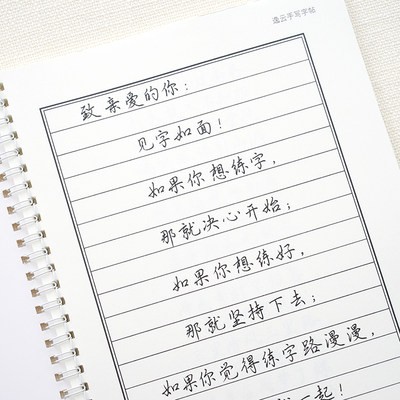 逸云手写字帖
致亲爱的你：
见字如面！
如果你想练字，
那就决心开始；
如果你想练好，
那就坚持下去；
如果你觉得练字路漫漫，
一起！